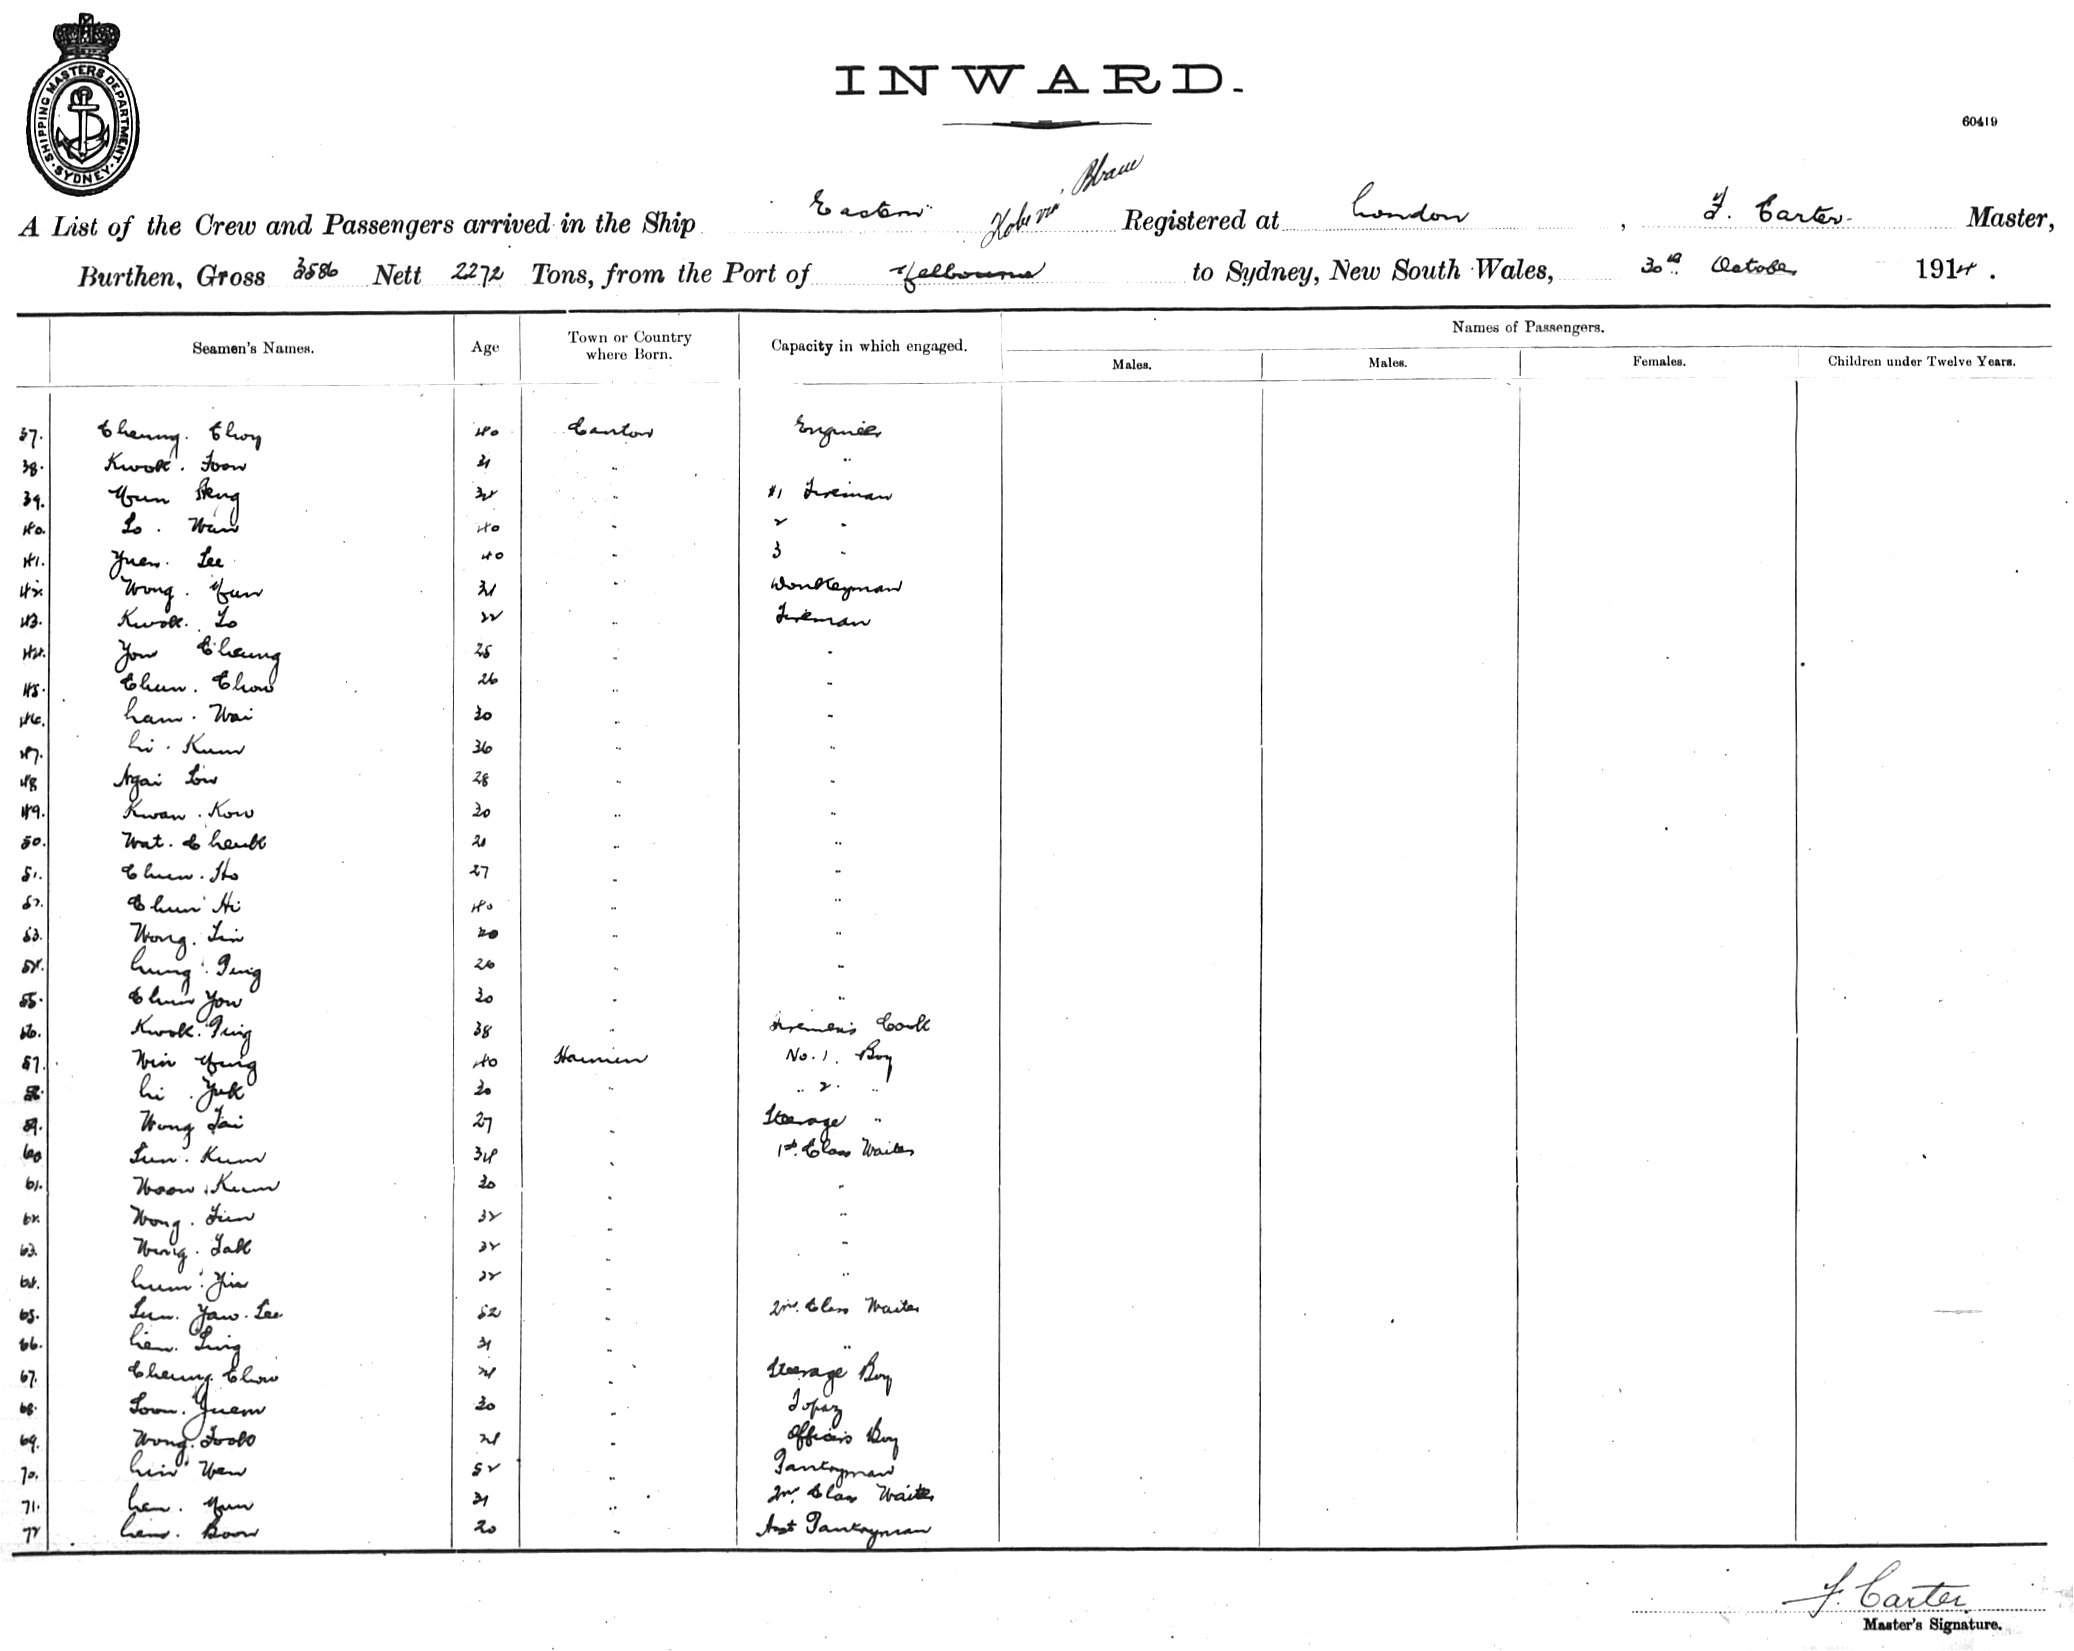 SHIPPING MASTERS DEPARTMENT. SYDNEY.
INWARD.
60419
A List of the Crew and Passengers arrived in the Ship Eastern Kobe via Registered at London, F. Carter Master,
Burthen, Gross 3586 Nett 2272 Tons, from the Port of Melbourne to Sydney, New South Wales, 30th October 1914.
Seamen's Names. Age Town or Country where Born. Capacity in which engaged. Names of Passengers.
Males. Males. Females. Children under Twelve Years.
37. Cheung. Choy 40 Canton Engineer
38. Kwok. Foon 31 " "
39. Mun 32 " #1 Fireman
40. Lo. Wan 40 " 2 "
41. Yuen. Lee 40 " 3 "
42. Wong. Mun 31 " Donkeyman
43. Kwok. Lo 22 " Fireman
44. Yow Cheung 25 " "
45. Chun. Chow 26 " "
46. Lam. Wai 30 " "
47. Li. Kum 36 " "
48 Ngai Low 28 " "
49. Kwan. Kow 30 " "
50. Wat. Cheuk 21 " "
51. Chun. Ho 27 " "
52. Chun Hi 40 " "
53. Wong. Lin 40 " "
54. Lung. Ping 26 " "
55. Chun Yow 30 " "
56. Kwok. Ping 38 " Firemen's Cook
57. Win Mung 40 Hainan No. 1. Boy
58. Li. Yuk 30 " " 2. "
59. Wong Tai 27 " Steerage "
60 Sun. Kum 34 " 1st. Class Waiter
61. Woon. Kum 30 " "
62. Wong. Fun 32 " "
63. Wong. Tak 32 " "
64. Lum. Yin 22 " "
65. Sun. Yaw. See 52 " 2nd. Class Waiter
66. Lien. Ling 31 " "
67. Cheung. Chow 21 " Steerage Boy
68. Soon. Yuem 30 " Topaz
69. Wong. Fook 21 " Officers Boy
70. Lin Wen 52 " Pantryman
71. Len. Mun 31 " 2nd. Class Waiter
72 Lien. Boon 20 " Asst Pantryman
F. Carter
Master's Signature.